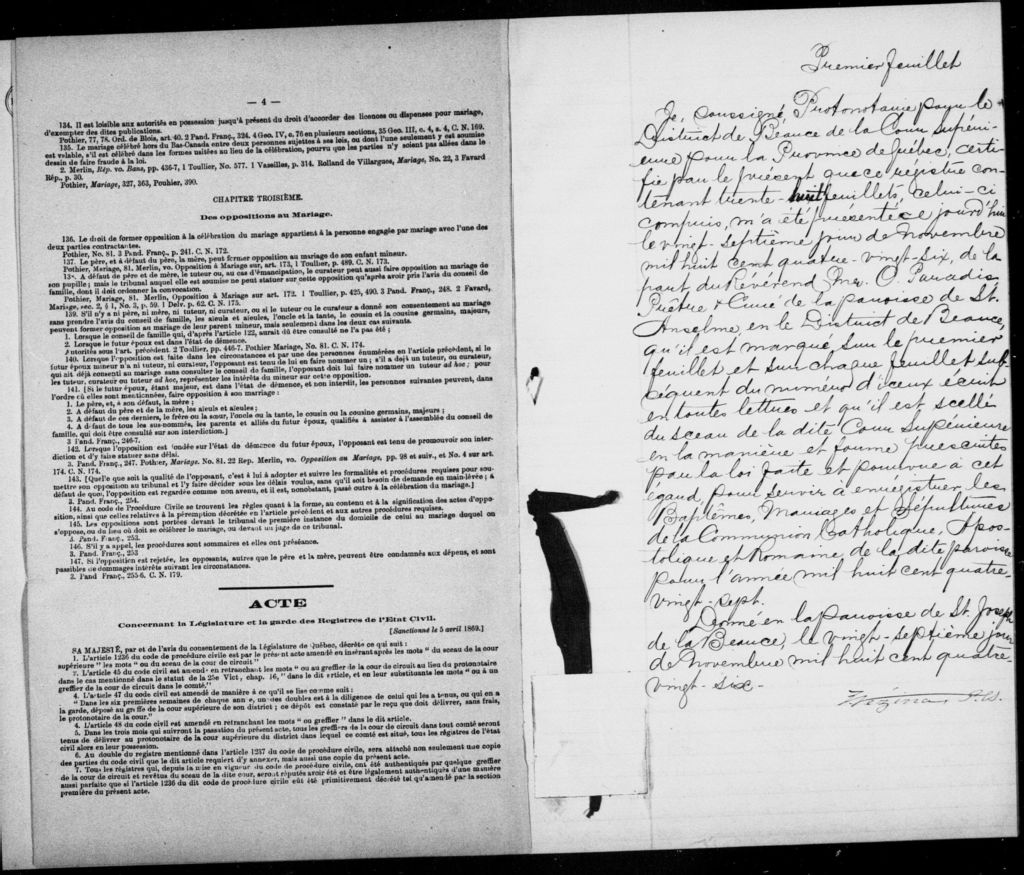 — 4 —
134. Il est loisible aux autorités en possession jusqu'à présent du droit d'accorder des licences ou dispenses pour mariage,
d'exempter des dites publications.
Pothier, 77, 78. Ord. de Blois, art. 40. 2 Pand. Franç., 324. 4 Geo. IV, c. 76 en plusieurs sections, 35 Geo. III, c. 4, s. 4, C. N. 169.
135. Le mariage célébré hors du Bas-Canada entre deux personnes sujettes à ses lois, ou dont l'une seulement y est soumise
est valable, s'il est célébré dans les formes usitées au lieu de la célébration, pourvu que les parties n'y soient pas allées dans le
dessein de faire fraude à la loi.
2. Merlin, Rép. vo. Bans, pp. 436-7, 1 Toullier, No. 577. 1 Vazeilles, p. 314. Rolland de Villargues, Mariage, No. 22, 3 Favard
Rép., p. 30.
Pothier, Mariage, 327, 363, Pouhier, 390.
CHAPITRE TROISIÈME.
Des oppositions au Mariage.
136. Le droit de former opposition à la célébration du mariage appartient à la personne engagée par mariage avec l'une des
deux parties contractantes.
Pothier, No. 81. 3 Pand. Franç., p. 241. C. N. 172.
137. Le père, et à défaut du père, la mère, peut former opposition au mariage de son enfant mineur.
Pothier, Mariage, 81. Merlin, vo. Opposition à Mariage sur, art. 173, 1 Toullier, p. 489. C. N. 173.
138. A défaut de père et de mère, le tuteur ou, au cas d'émancipation, le curateur peut aussi faire opposition au mariage de
son pupille; mais le tribunal auquel elle est soumise ne peut statuer sur cette opposition qu'après avoir pris l'avis du conseil de
famille, dont il doit ordonner la convocation.
Pothier, Mariage, 81. Merlin, Opposition à Mariage sur art. 172. 1 Toullier, p. 425, 490. 3 Pand. Franç., 248. 2 Favard,
Mariage, sec. 2, § 1, No. 3, p. 59. 1 Delv. p. 62, C. N. 175.
139. S'il n'y a ni père, ni mère, ni tuteur, ni curateur, ou si le tuteur ou le curateur a donné son consentement au mariage
sans prendre l'avis du conseil de famille, les aieuls et aieules, l'oncle et la tante, le cousin et la cousine germains, majeurs,
peuvent former opposition au mariage de leur parent mineur, mais seulement dans les deux cas suivants.
1. Lorsque le conseil de famille qui, d'après l'article 122, aurait dû être consulté ne l'a pas été;
2. Lorsque le futur époux est dans l'état de démence.
Autorités sous l'art. précédent. 2 Toullier, pp. 446-7. Pothier Mariage, No. 81. C. N. 174.
140. Lorsque l'opposition est faite dans les circonstances et par une des personnes énumérées en l'article précédent, si le
futur époux mineur n'a ni tuteur, ni curateur, l'opposant est tenu de lui en faire nommer un; s'il a déjà un tuteur, ou curateur,
qui ait déjà consenti au mariage sans consulter le conseil de famille, l'opposant doit lui faire nommer un tuteur ad hoc; pour
les tuteur, curateur ou tuteur ad hoc, représenter les intérêts du mineur sur cette opposition.
141. [Si le futur époux, étant majeur, est dans l'état de démence, et non interdit, les personnes suivantes peuvent, dans
l'ordre où elles sont mentionnées, faire opposition à son mariage:
1. Le père, et, à son défaut, la mère;
2. A défaut du père et de la mère, les aieuls et aieules;
3. A défaut de ces derniers, le frère ou la sœur, l'oncle ou la tante, le cousin ou la cousine germains, majeurs;
4. A défaut de tous les sus-nommés, les parents et alliés du futur époux, qualifiés à assister à l'assemblée du conseil de
famille, qui doit être consulté sur son interdiction.]
3 Pand. Franç., 246-7.
142. Lorsque l'opposition est fondée sur l'état de démence du futur époux, l'opposant est tenu de promouvoir son inter-
diction et d'y faire statuer sans délai.
3. Pand. Franç., 247. Pothier, Mariage. No. 81. 22 Rep. Merlin, vo. Opposition au Mariage, pp. 98 et suiv., et No. 4 sur art.
174. C. N. 174.
143. [Quelle que soit la qualité de l'opposant, c'est à lui à adopter et suivre les formalités et procédures requises pour sou-
mettre son opposition au tribunal et l'y faire décider sous les délais voulus, sans qu'il soit besoin de demande en main-levée; à
défaut de quoi, l'opposition est regardée comme non avenu, et il est, nonobstant, passé outre à la célébration du mariage.]
3. Pand. Franç., 254.
144. Au code de Procédure Civile se trouvent les règles quant à la forme, au contenu et à la signification des actes d'oppo-
sition, ainsi que celles relatives à la péremption décrétée en l'article précédent et aux autres procédures requises.
145. Les oppositions sont portées devant le tribunal de première instance du domicile de celui au mariage duquel on
s'oppose, ou du lieu où doit se célébrer le mariage, ou devant un juge de ce tribunal.
3. Pand. Franç., 253.
146. S'il y a appel, les procédures sont sommaires et elles ont préséance.
3. Pand. Franç., 253
147. Si l'opposition est rejetée, les opposants, autres que le père et la mère, peuvent être condamnés aux dépens, et sont
passibles de dommages intérêts suivant les circonstances.
3. Pand Franç., 255-6. C. N. 179.
ACTE
Concernant la Législature et la garde des Registres de l'Etat Civil.
[Sanctionné le 5 avril 1869.]
SA MAJESTÉ, par et de l'avis du consentement de la Législature de Québec, décrète ce qui suit:
1. L'article 1236 du code de procédure civile est par le présent acte amendé en insérant après les mots " du sceau de la cour
supérieure " les mots " ou du sceau de la cour de circuit."
2. L'article 45 du code civil est amendé en retranchant les mots " ou au greffier de la cour de circuit au lieu du protonotaire
dans le cas mentionné dans le statut de la 25e Vict, chap. 16, " dans le dit article, et en leur substituant les mots " ou à un
greffier de la cour de circuit dans le comté."
3. L'article 47 du code civil est amendé de manière à ce qu'il se lise comme suit:
" Dans les six premières semaines de chaque année, un des doubles est à la diligence de celui qui les a tenus, ou qui en a
la garde, déposé au greffe de la cour supérieure de son district; ce dépôt est constaté par le reçu que doit délivrer, sans frais,
le protonotaire de la cour."
4. L'article 48 du code civil est amendé en retranchant les mots " ou greffier " dans le dit article.
5. Dans les trois mois qui suivront la passation du présent acte, tous les greffiers de la cour de circuit dans tout comté seront
tenus de délivrer au protonotaire de la cour supérieure du district dans lequel ce comté est situé, tous les registres de l'état
civil alors en leur possession.
6. Au double du registre mentionné dans l'article 1237 du code de procédure civile, sera attaché non seulement une copie
des parties du code civil que le dit article requiert d'y annexer, mais aussi une copie du présent acte.
7. Tous les registres qui, depuis la mise en vigueur du code de procédure civile, ont été authentiqués par quelque greffier
de la cour de circuit et revêtus du sceau de la dite cour, seront réputés avoir été et être légalement authentiqués d'une manière
aussi parfaite que si l'article 1236 du dit code de procédure civile eût été primitivement décrété tel qu'amendé par la section
première du présent acte.
Premier feuillet
Je, soussigné, Protonotaire pour le
District de Beauce de la Cour Supéri-
eure pour la Province de Québec, certi-
fie par le présent que ce régistre con-
tenant trente-huit feuillets, celui-ci
compris, m'a été présenté ce jourd'hui
le vingt-septième jour de Novembre
mil huit cent quatre-vingt-six, de la
part du Révérend Mr. O. Paradis
Prêtre & Curé de la paroisse de St.
Anselme, en le District de Beauce,
qu'il est marqué sur le premier
feuillet et sur chaque feuillet sub-
séquent du numéro d'iceux écrit
en toutes lettres et qu'il est scellé
du sceau de la dite Cour Supérieure
en la manière et forme prescrites
par la loi faite et pourvue à cet
égard, pour servir à enrégistrer les
Baptêmes, Mariages et Sépultures
de la Communion Catholique, Apos-
tolique et Romaine de la dite paroisse
pour l'année mil huit cent quatre-
vingt-sept.
Donné en la paroisse de St. Joseph
de la Beauce, le vingt-septième jour
de Novembre mil huit cent quatre-
vingt-six-